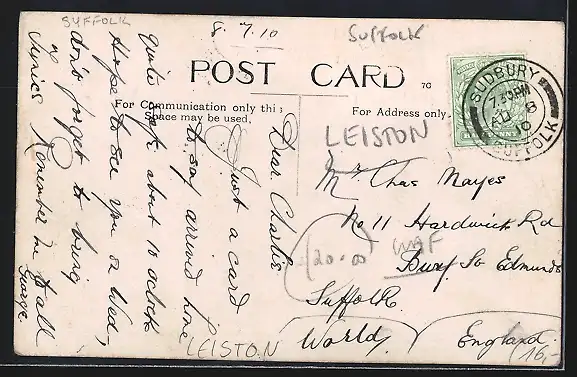 SUFFOLK
8.7.10
SUFFOLK
POST CARD
7C
For Communication only this
Space may be used.
For Address only.
SUDBURY
7.30PM
AU 8
10
SUFFOLK
HALFPENNY
LEISTON
Dear Charlie
Just a card
to say arrived home
quite safe about 10 oclock
Hope to see you on Wed,
don't forget to bring
Lyrics Remember me to all
George.
Mr Chas Mayes
No 11 Hardwick Rd
Bury St Edmunds
Suffolk
World,
England
WAF
20.00
LEISTON
16,-